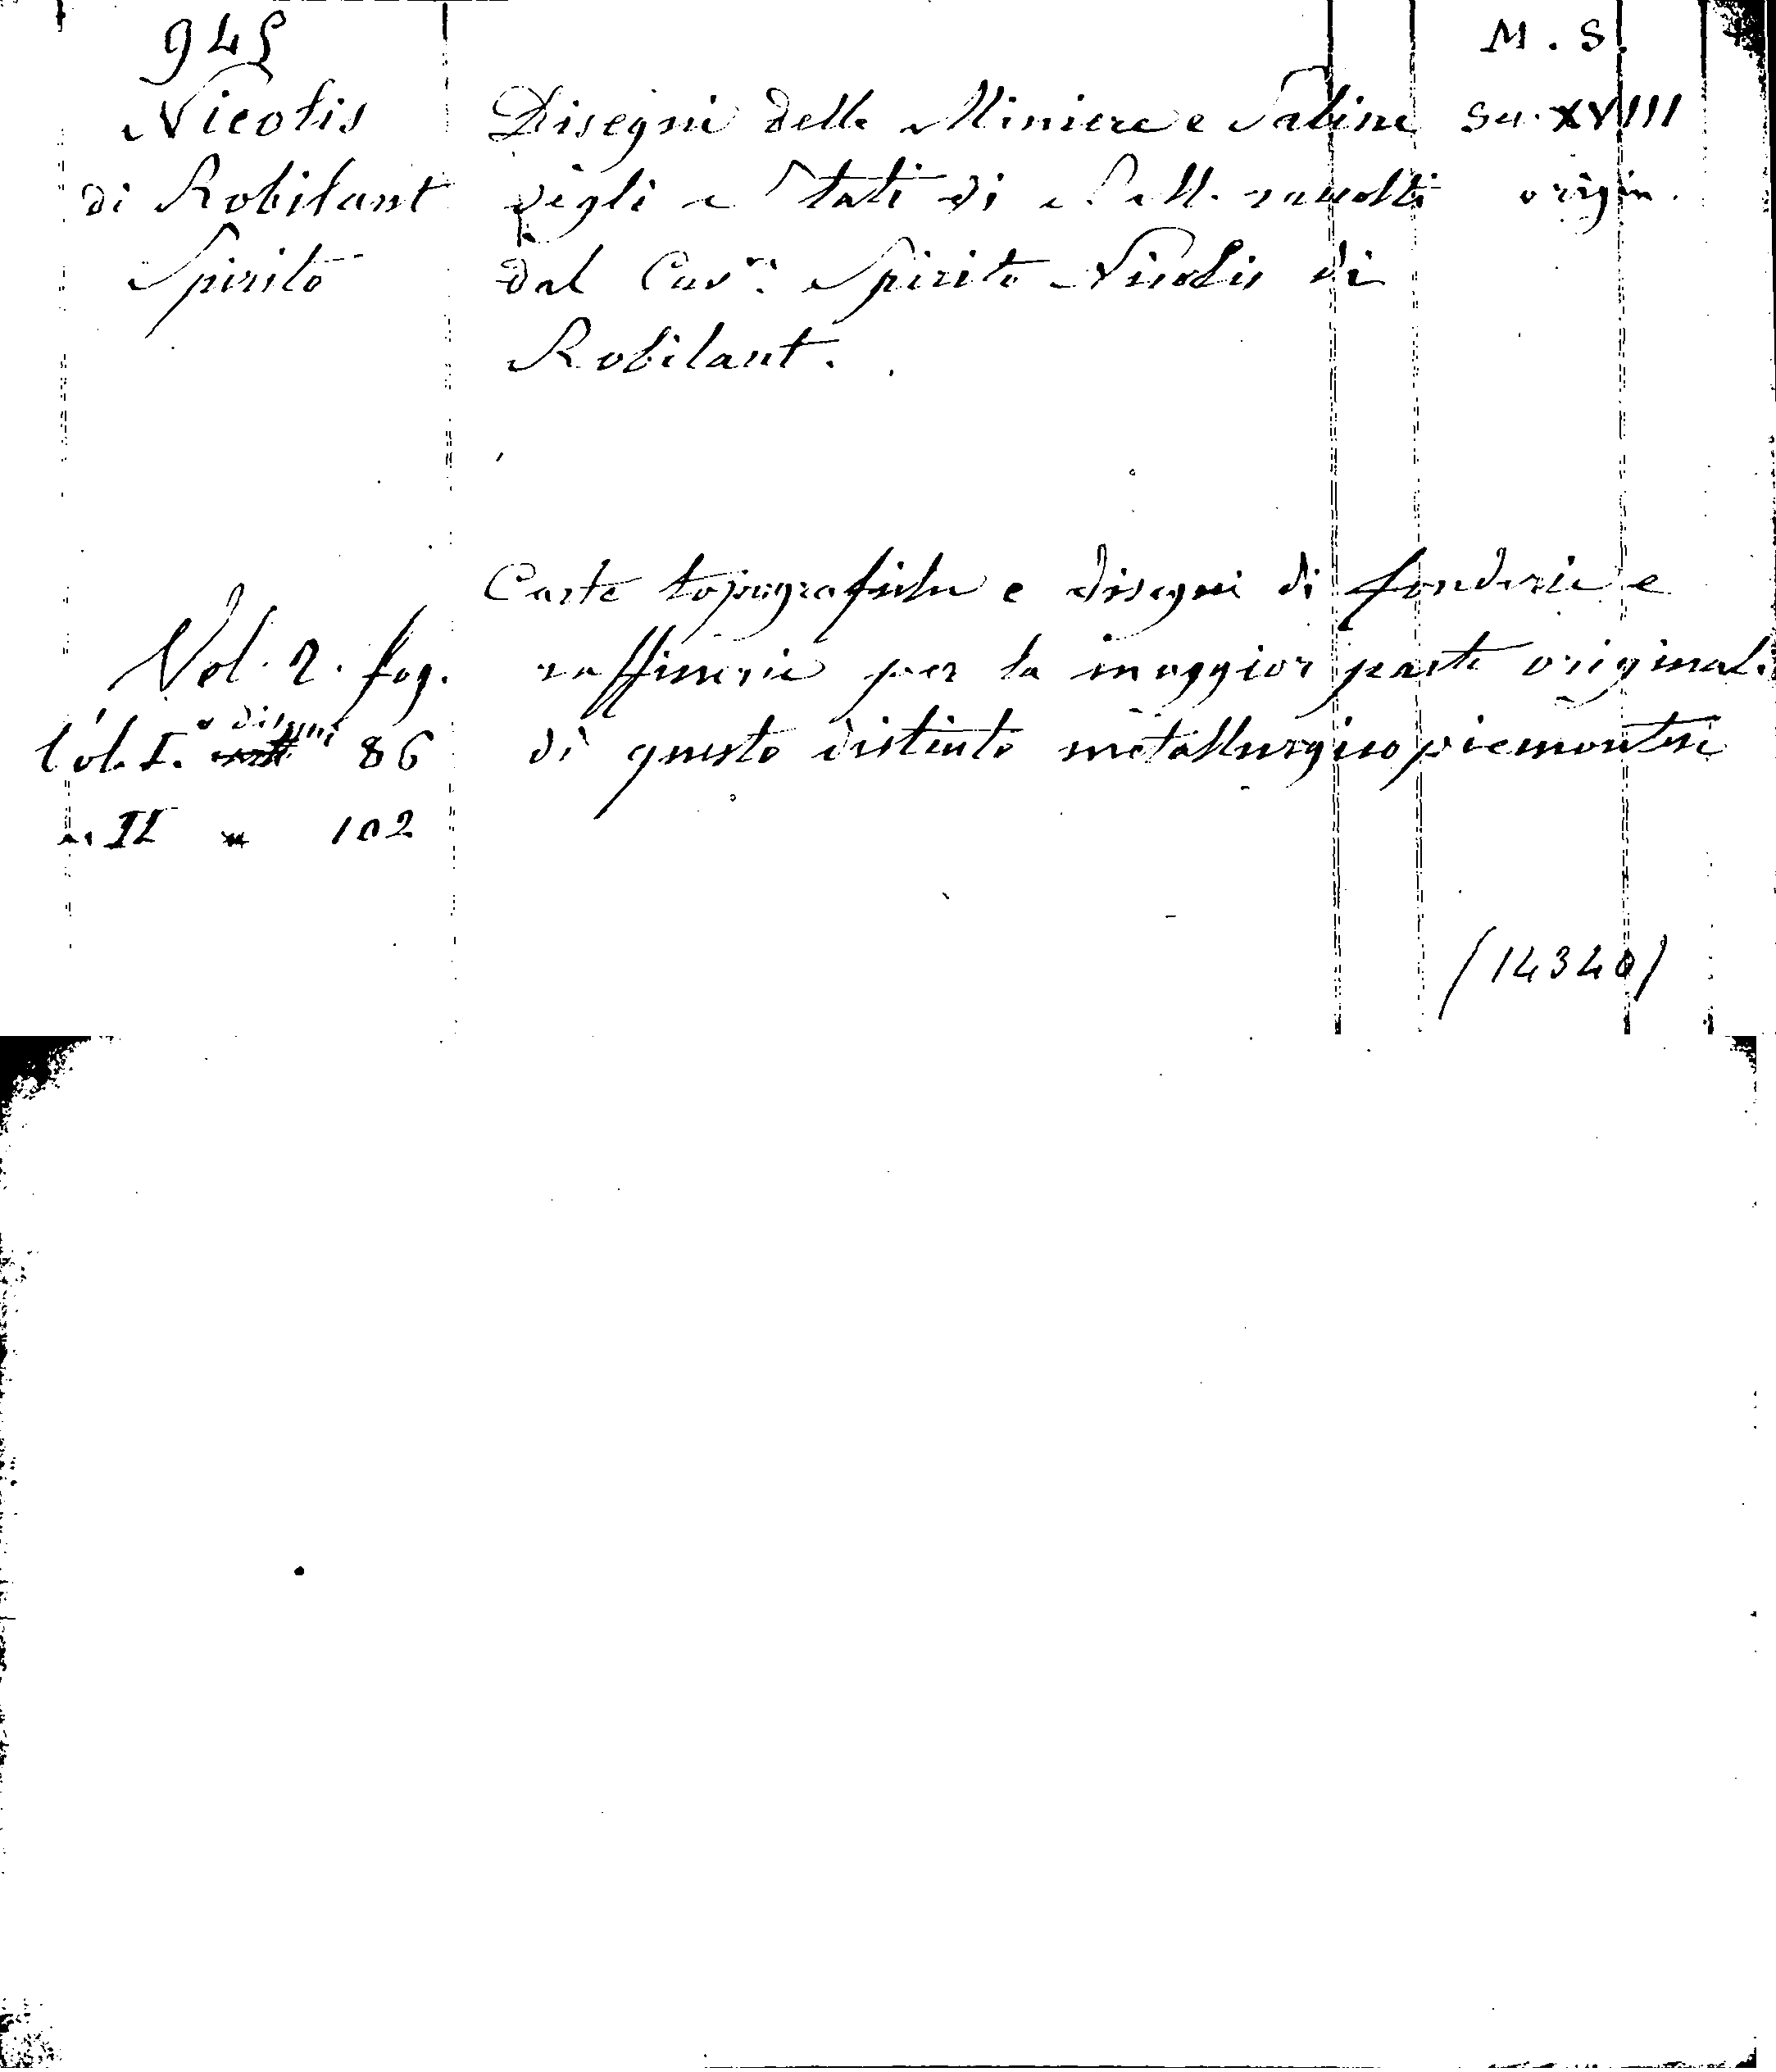 945
M. S.
Nicolis
di Robilant
Spirito
Disegni delle Miniere e Saline
degli Stati di S. M. raccolti
dal Cav.re Spirito Nicolis di
Robilant.
Sec. XVIII
origin.
Vol. 2. fog.
Vol. I. disegni 86
" II " 102
Carte topografiche e disegni di fonderie e
raffinerie per la maggior parte original.
di questo distinto metallurgico piemontese
(14340)